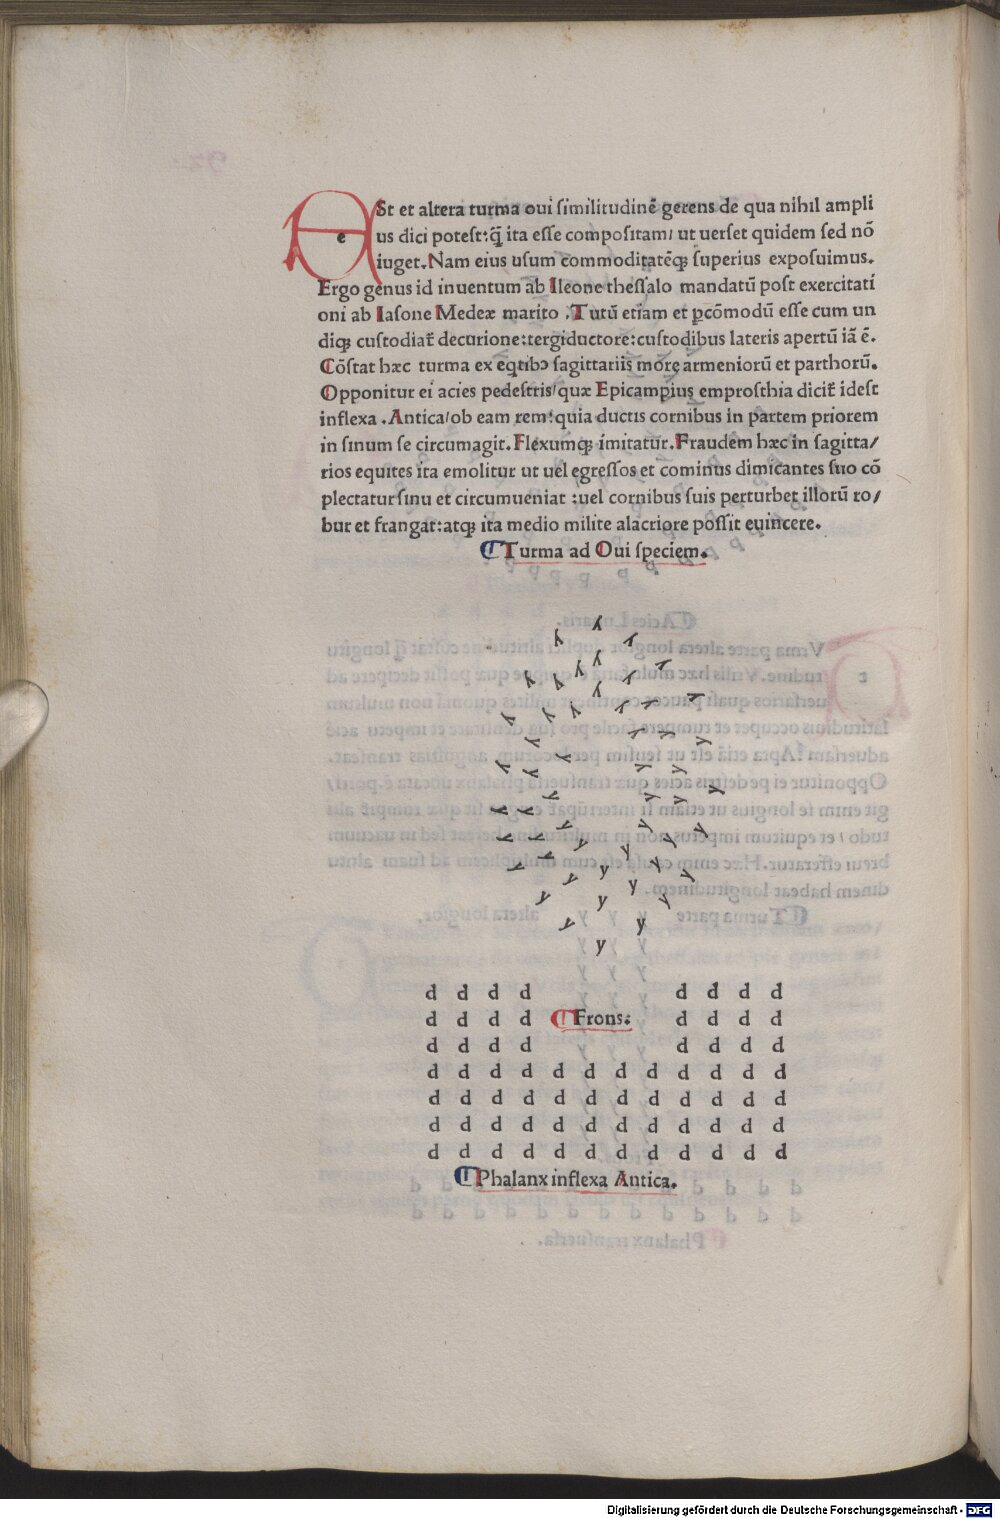 eSt et altera turma oui ſimilitudinē gerens de qua nihil ampli
us dici poteſt:q̄ ita eſſe compoſitam/ ut uerſet quidem ſed nō
iuget.Nam eius uſum commoditatēq; ſuperius expoſuimus.
Ergo genus id inuentum ab Ileone theſſalo mandatū poſt exercitati
oni ab Iaſone Medeæ marito .Tutū etiam et ꝑcōmodū eſſe cum un
diq; cuſtodiat̄ decurione:tergiductore:cuſtodibus lateris apertū iā ē.
Cōſtat hæc turma ex eqtibꝰ ſagittariis more armeniorū et parthorū.
Opponitur ei acies pedeſtris/quæ Epicampius emproſthia dicit̄ ideſt
inflexa .Antica/ob eam rem:quia ductis cornibus in partem priorem
in ſinum ſe circumagit.Flexumq; imitatur.Fraudem hæc in ſagitta/
rios equites ita emolitur ut uel egreſſos et cominus dimicantes ſuo cō
plectatur ſinu et circumueniat :uel cornibus ſuis perturbet illorū ro/
bur et frangat:atq; ita medio milite alacriore poſſit euincere.
Turma ad Oui ſpeciem.
d d d d d d d d
d d d d Frons: d d d d
d d d d d d d d
d d d d d d d d d d d d
d d d d d d d d d d d d
d d d d d d d d d d d d
d d d d d d d d d d d d
Phalanx inflexa Antica.
Digitalisierung gefördert durch die Deutsche Forschungsgemeinschaft - DFG